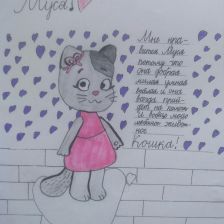 Муса!
Мне нра-
вится Муса
потому что
она добрая
милая умная
и она
всегда при-
дёт на помощь
и вообще моё
любимое живот-
ное
Кошка!